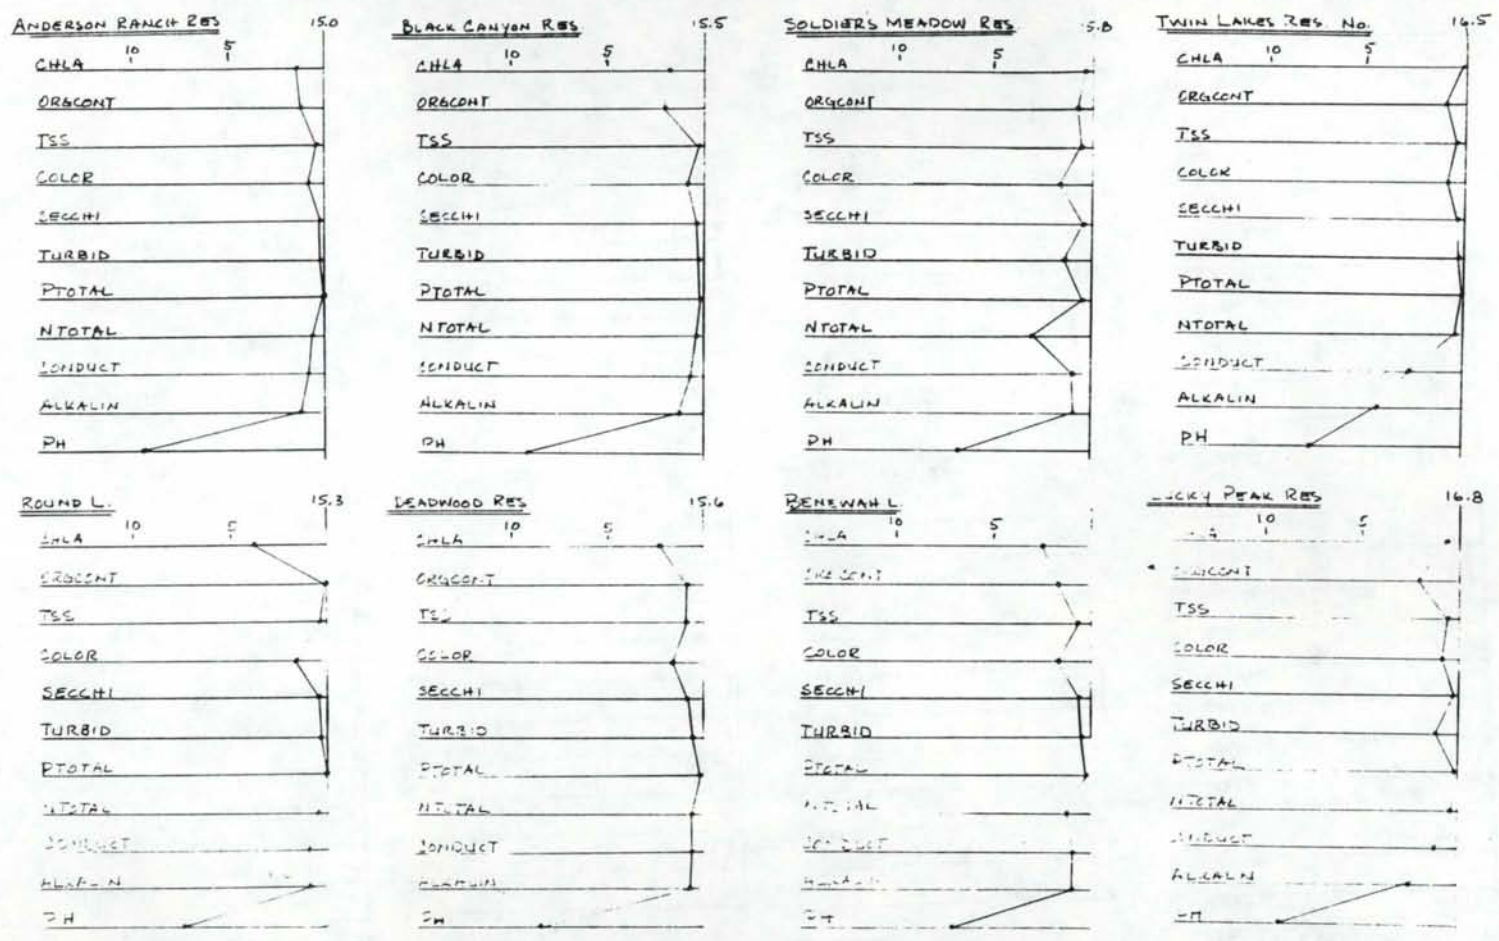 ANDERSON RANCH RES 15.0
10 5
CHLA
ORGCONT
TSS
COLOR
SECCHI
TURBID
PTOTAL
NTOTAL
CONDUCT
ALKALIN
PH
BLACK CANYON RES 15.5
10 5
CHLA
ORGCONT
TSS
COLOR
SECCHI
TURBID
PTOTAL
NTOTAL
CONDUCT
ALKALIN
PH
SOLDIERS MEADOW RES 5.8
10 5
CHLA
ORGCONT
TSS
COLOR
SECCHI
TURBID
PTOTAL
NTOTAL
CONDUCT
ALKALIN
PH
TWIN LAKES RES. No. 16.5
10 5
CHLA
ORGCONT
TSS
COLOR
SECCHI
TURBID
PTOTAL
NTOTAL
CONDUCT
ALKALIN
PH
ROUND L. 15.3
10 5
CHLA
ORGCONT
TSS
COLOR
SECCHI
TURBID
PTOTAL
NTOTAL
CONDUCT
ALKALIN
PH
DEADWOOD RES 15.6
10 5
CHLA
ORGCONT
TSS
COLOR
SECCHI
TURBID
PTOTAL
NTOTAL
CONDUCT
ALKALIN
PH
BENEWAH L.
10 5
CHLA
ORGCONT
TSS
COLOR
SECCHI
TURBID
PTOTAL
NTOTAL
CONDUCT
ALKALIN
PH
LUCKY PEAK RES 16.8
10 5
ORGCONT
TSS
COLOR
SECCHI
TURBID
PTOTAL
NTOTAL
CONDUCT
ALKALIN
PH